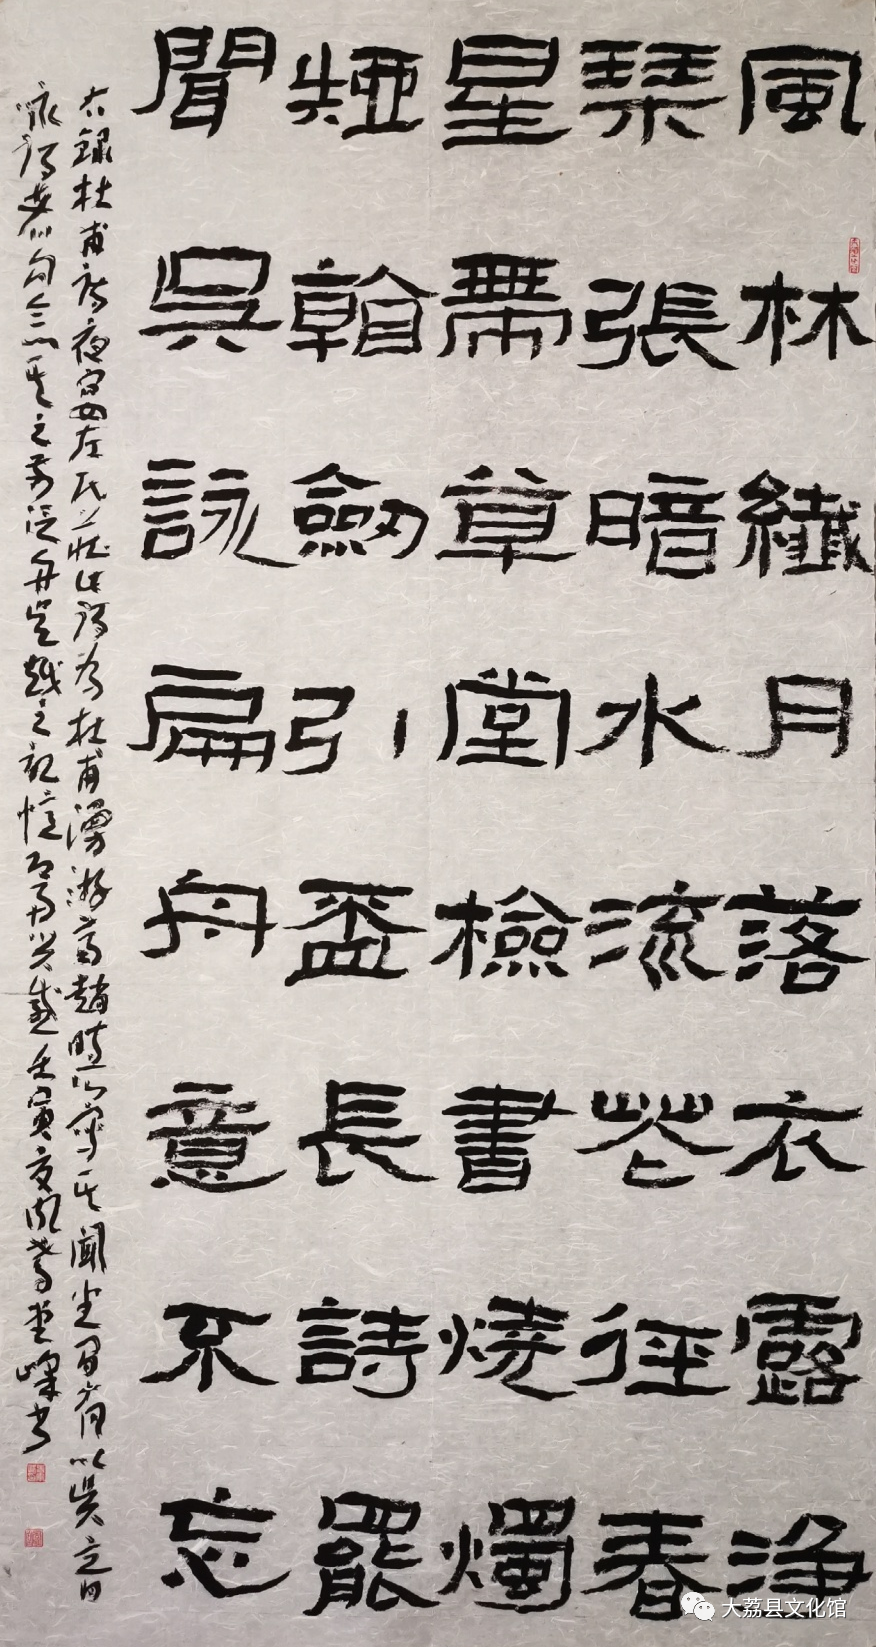 風林纖月落衣露浄
琹張暗水流花徑春
星帶草堂檢書燒燭
短看劍引盃長詩罷
聞吳詠扁舟意不忘
右錄杜甫詩夜宴左氏莊此詩为杜甫漫游齊趙時所寫其聞坐間有以吳
詠詩之前泛舟吳越之記憶壬寅夏堂峰书
大荔县文化馆